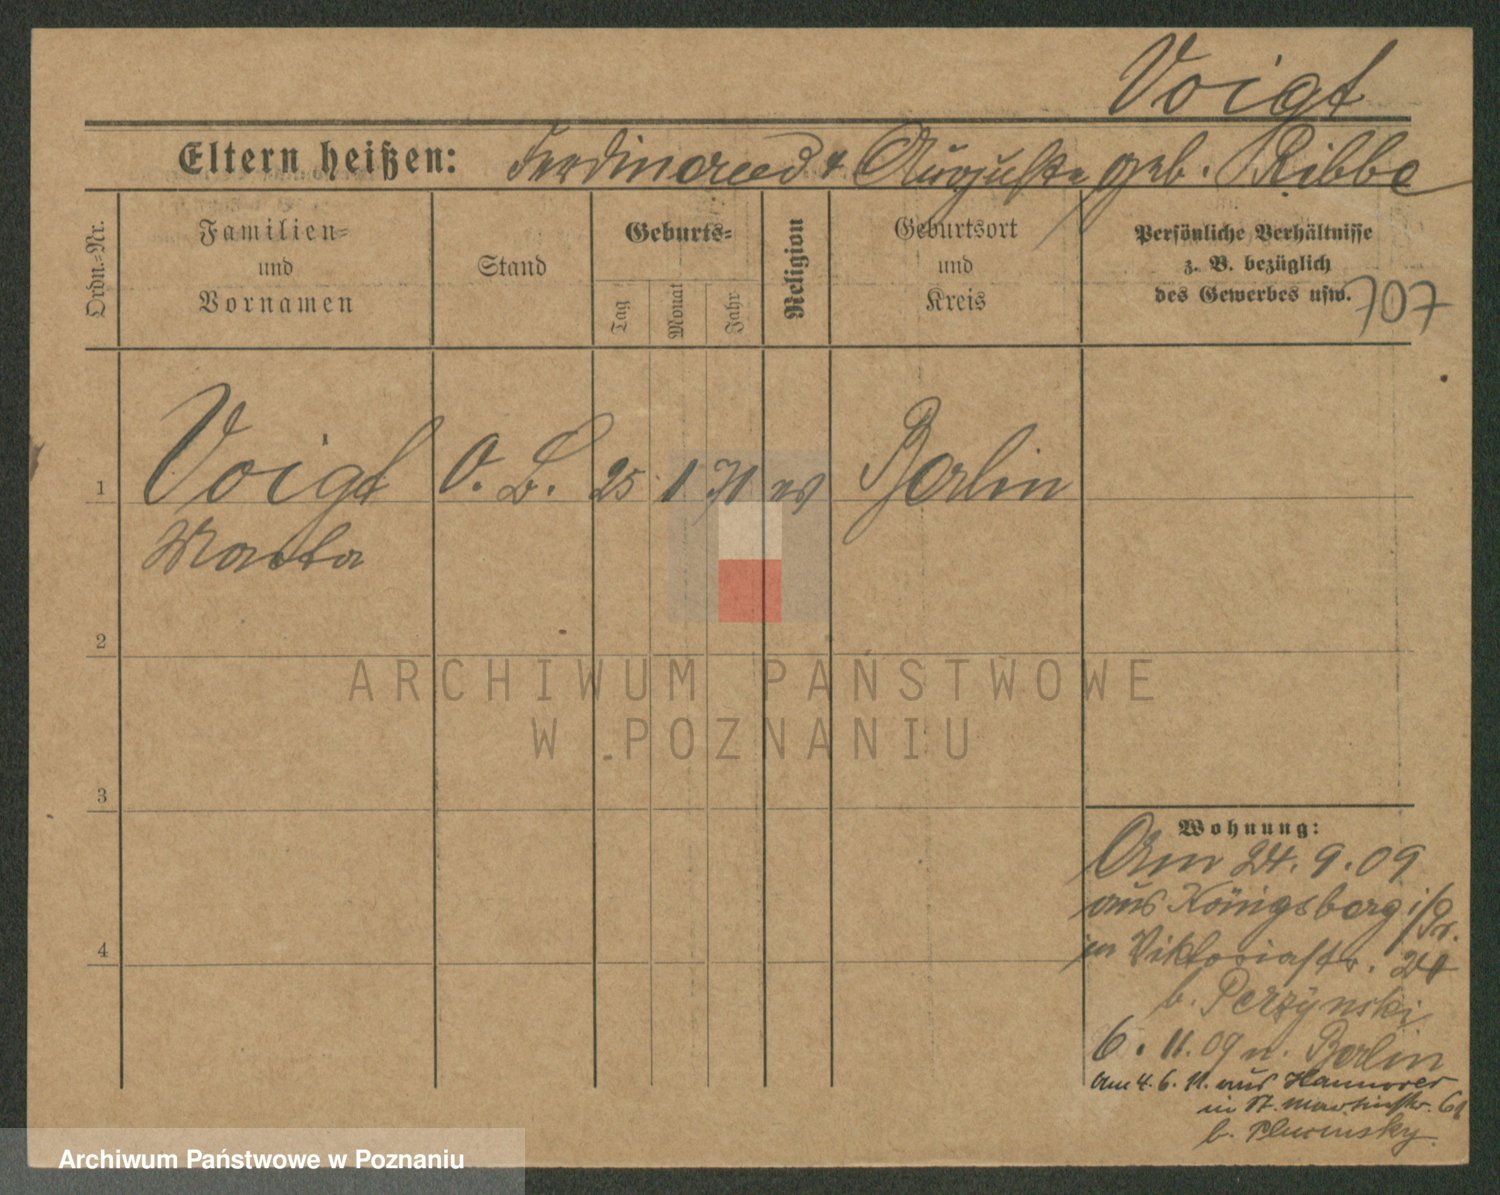 Voigt
Eltern heißen: Ferdinand & Auguste geb. Ribbe
Ordn.-Nr.
Familien-
und
Vornamen
Stand
Geburts-
Tag
Monat
Jahr
Religion
Geburtsort
und
Kreis
Persönliche Verhältnisse
z. B. bezüglich
des Gewerbes usw.
707
1 Voigt O. L. 25 1 71 ev Berlin
Marta
2
ARCHIWUM PAŃSTWOWE
W POZNANIU
3
Wohnung:
Am 24. 9. 09
aus Königsberg i/Pr.
in Viktoriastr. 24
b. Perzynski
4
6. 11. 09 n. Berlin
Am 4. 6. 11. aus Hannover
in St. Martinstr. 61
b.
Archiwum Państwowe w Poznaniu